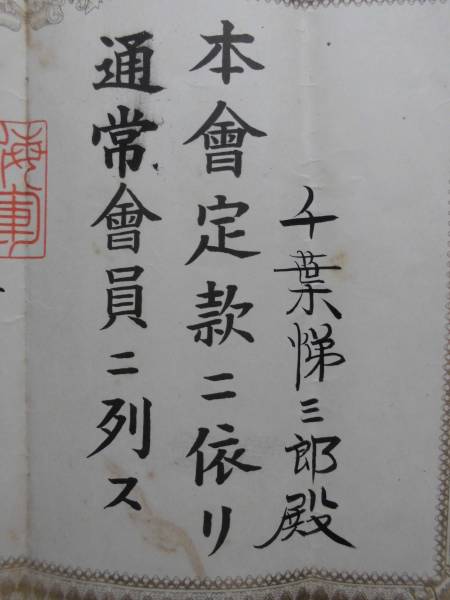 千葉悌三郎殿
本會定款ニ依リ
通常會員ニ列ス
海軍